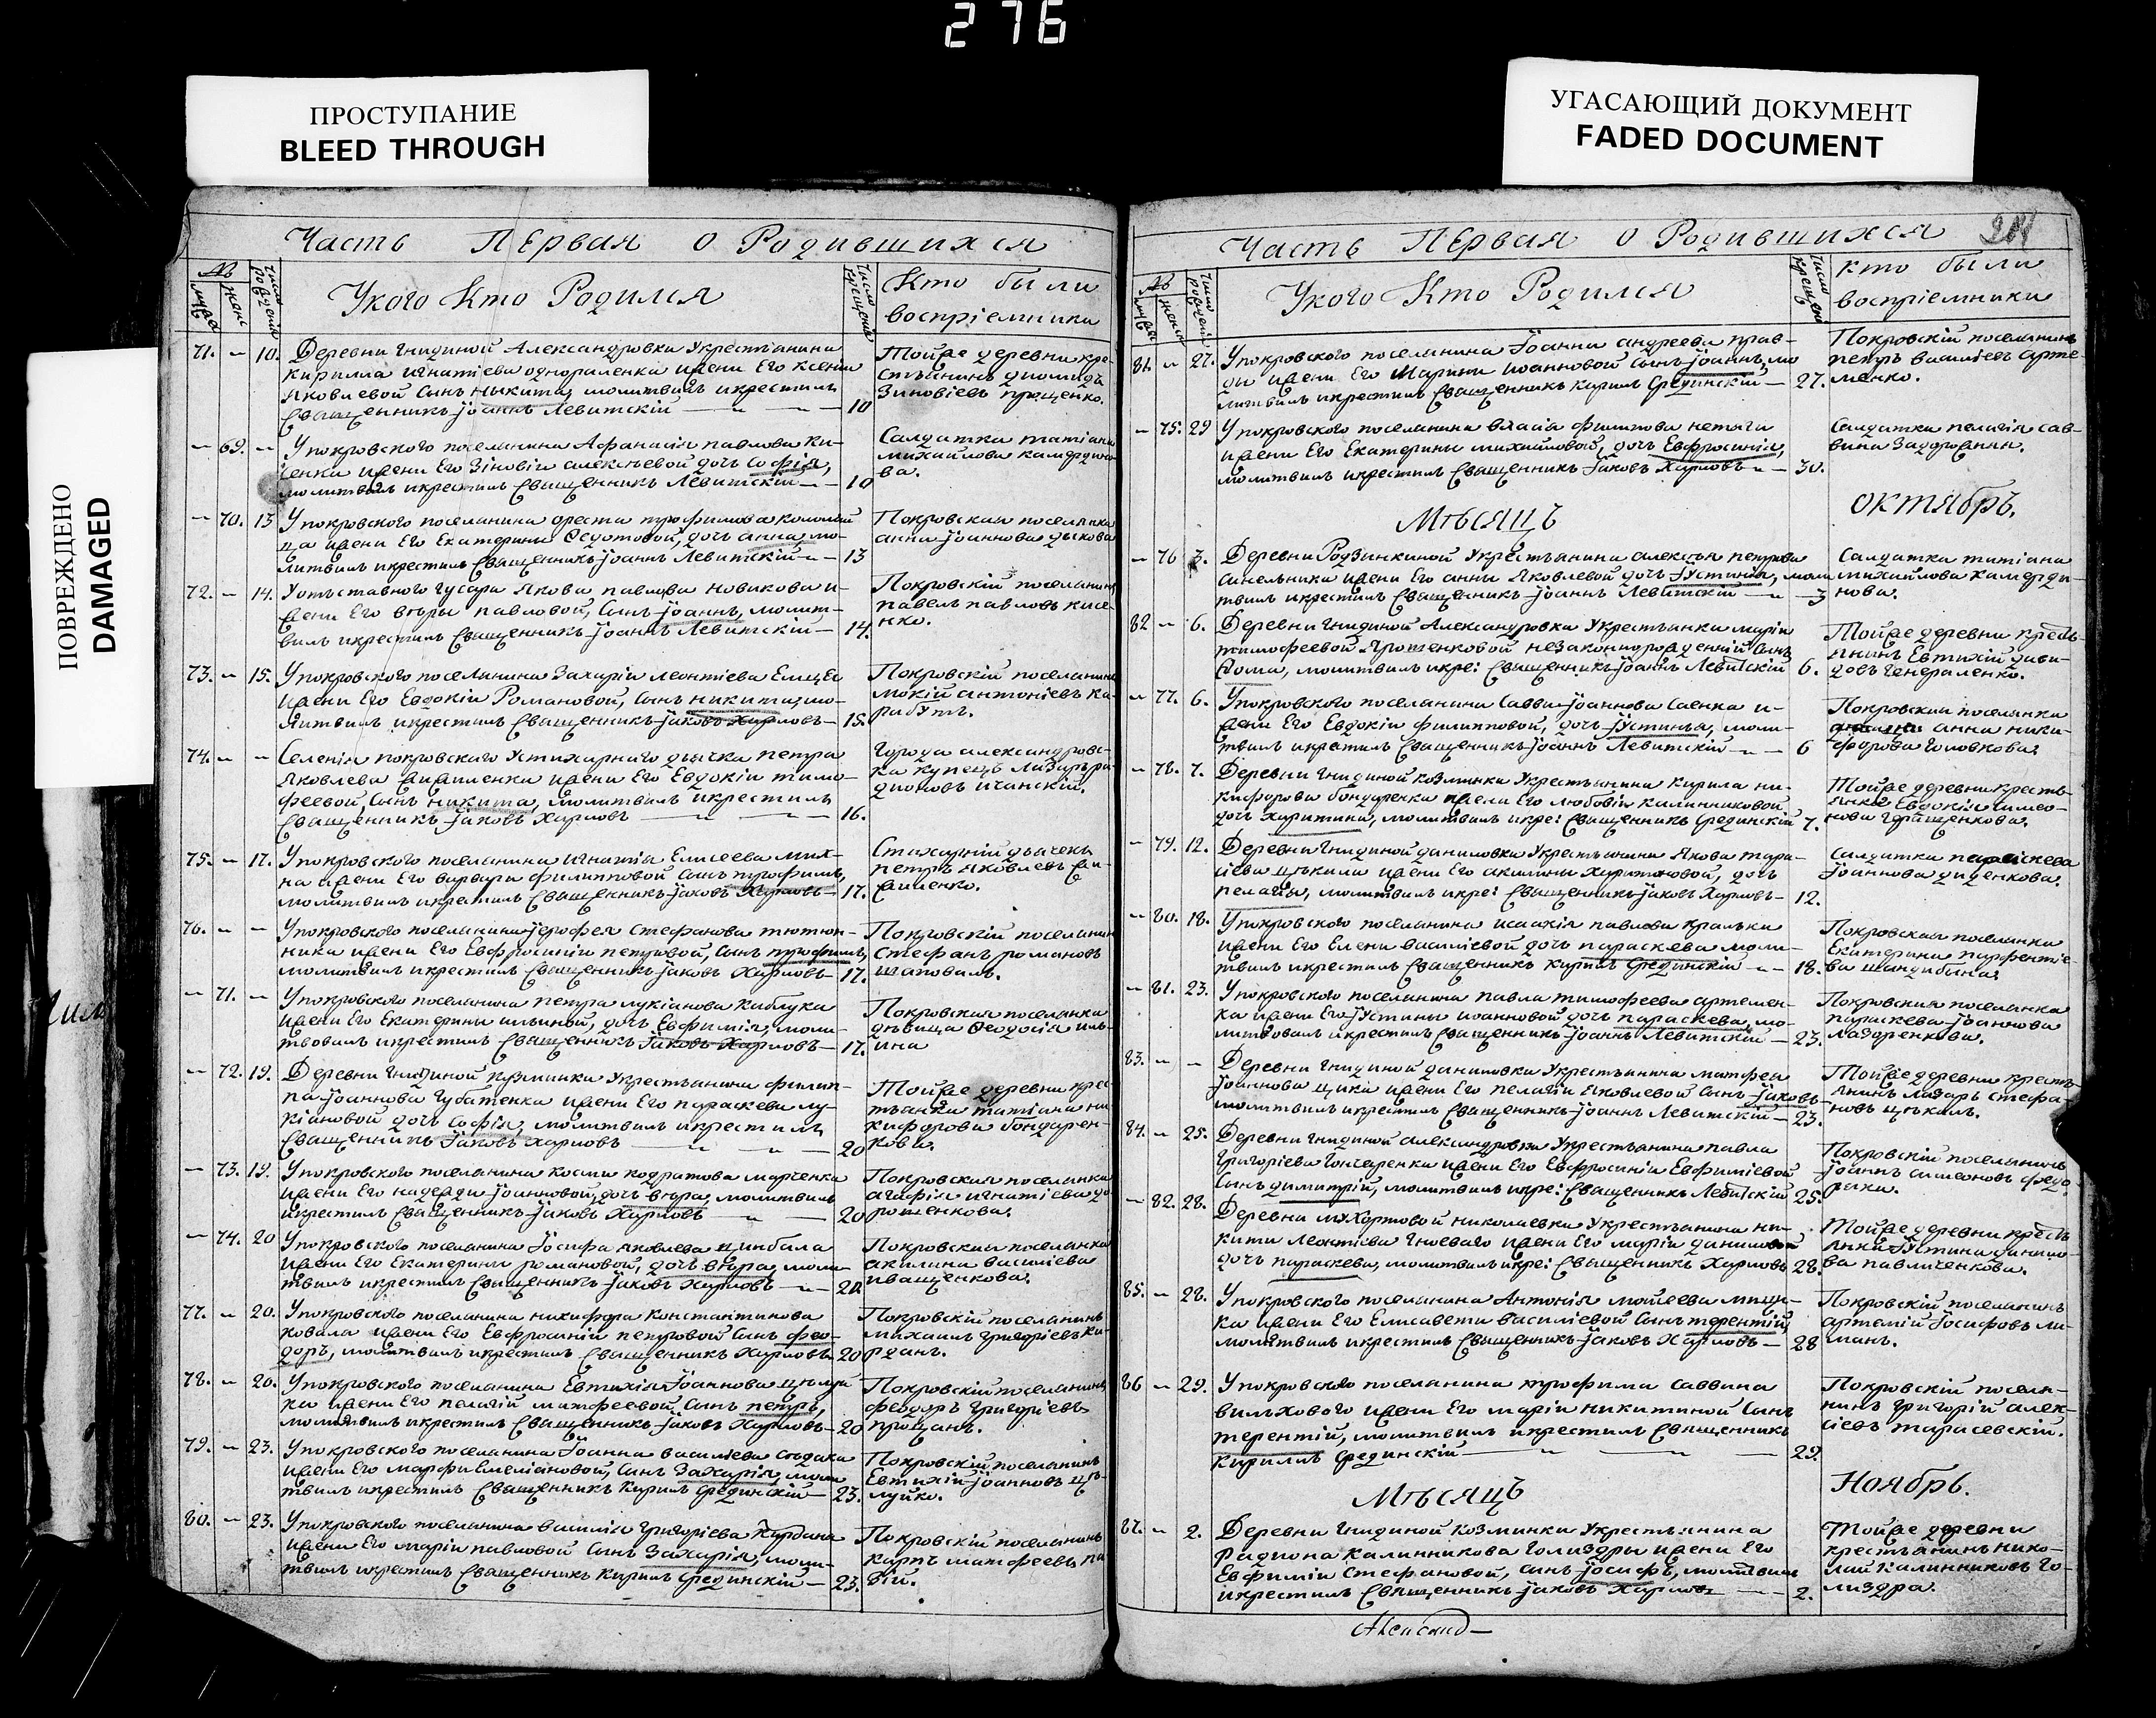 276
ПРОСТУПАНИЕ
BLEED THROUGH
УГАСАЮЩИЙ ДОКУМЕНТ
FADED DOCUMENT
ПОВРЕЖДЕНО
DAMAGED
Часть Первая о Родившихся
Укого Кто Родился
Кто были
воспріемники
71. 10. Деревни Гнидиной Александровки Укрестьянина
Кирилла игнатіева однораленка жени Его Ксеніи
Яковлевой Сынъ Никита, молитвилъ икрестилъ
Священникъ Іоаннъ Левитскій 10
Тойже деревни кре-
стьянинъ диомидъ
Зиновіевъ прощенко.
69. Упокровского поселянина Афанасія павлова Ки-
жени Его Зіновіи алексѣевой дочь Софія,
молитвилъ икрестилъ Священникъ Левитскій 10
Салдатка татіана
михайлова камердино-
ва.
70. 13 Упокровского поселянина ореста трофимова
жени Его Екатерини Ѳедотовой, дочь анна, мо-
литвилъ икрестилъ Священникъ Іоаннъ Левитскій 13
Покровская поселянка
анна Іоаннова дикова
72. 14. Уотставного гусара Якова павлова новикова и
жени Его вѣры павловой, Сынъ Іоаннъ, молит-
вилъ икрестилъ Священникъ Іоаннъ Левитскій 14.
Покровскій поселянинъ
павелъ павловъ кисе-
нко.
73. 15. Упокровского поселянина Захарія леонтіева
жени Его Евдокіи Романовой, Сынъ никита, мо-
литвилъ икрестилъ Священникъ Іаковъ Харловъ 15.
Покровскій поселянинъ
мокій антоніевъ ка-
рабутъ.
74. Селенія покровского Устихарного дьячка петра
Яковлева жени Его Евдокіи тимо-
феевой, Сынъ никита, молитвилъ икрестилъ
Священникъ Іаковъ Харловъ 16.
Города александровс-
ка купецъ лазаръ ра-
дионовъ ичанскій.
75. 17. Упокровского поселянина игнатія Елисеева мих-
на жени Его варвари филипповой Сынъ трофимъ,
молитвилъ икрестилъ Священникъ Іаковъ Харловъ 17.
Стихарній дьячекъ
петръ Яковлевъ
76. Упокровского поселянина Іерофея Стефанова тютюн-
ника жени Его Евфросиніи петровой, Сынъ трофимъ,
молитвилъ икрестилъ Священникъ Іаковъ Харловъ 17.
Покровскій поселянин
Стефанъ романовъ
шаповалъ.
71. Упокровского поселянина петра лукіанова Каблука
жени Его Екатерины ильиной, дочь Евфимія, моли-
твовалъ икрестилъ Священникъ Іаковъ Харловъ 17.
Покровская поселянка
дѣвица Ѳеодосія иль-
ина
72. 19. Деревни Гнидиной Кузминки Укрестьянина филип-
па Іоаннова Губатенка жени Его параскеви лу-
кіановой дочь Софія, молитвилъ икрестилъ
Священникъ Іаковъ Харловъ 20
Тойже деревни крес-
тьянка татіана ни-
кифорова бондарен-
кова.
73. 19. Упокровского поселянина косми кодратова марченка
жени Его надежди Іоанновой, дочь вѣра, молитвилъ
икрестилъ Священникъ Іаковъ Харловъ 20
Покровская поселянка
агафія игнатіева до-
рошенкова.
74. 20 Упокровского поселянина Іосифа Яковлева цимбала
жени Его Екатерини романовой, дочь вѣра, моли-
твилъ икрестилъ Священникъ Іаковъ Харловъ 20.
Покровская поселянка
акилина василіева
иващенкова.
77. 20. Упокровского поселянина никифора Константинова
ковала жени Его Евфросиніи петровой Сынъ фео-
доръ, молитвилъ икрестилъ Священникъ Харловъ 20
Покровскій поселянинъ
михаилъ Григоріевъ ка-
рданъ.
78. 20. Упокровского поселянина Евтихія Іоаннова цѣлуй
ка жени Его пелагіи матфеевой, Сынъ петръ,
молитвилъ икрестилъ Священникъ Іаковъ Харловъ 20
Покровскій поселянинъ
феодоръ Григоріевъ
прощанъ.
79. 23. Упокровского поселянина Іоанна василіева
жени Его марфи Емеліановой, Сынъ Захарія, моли-
твилъ икрестилъ Священникъ Кирилъ Срединскій 23.
Покровскій поселянинъ
Евтихій Іоанновъ цѣ-
луйко.
80. 23. Упокровского поселянина василія григоріева Кардана
жени Его маріи павловой Сынъ Захарія, моли-
твилъ икрестилъ Священникъ Кирилъ Срединскій 23.
Покровскій поселянинъ
карпъ матфеевъ
Часть Первая о Родившихся
Укого Кто Родился
кто были
воспріемники
81. 27. Упокровского поселянина Іоанна андреева прав-
ды жени Его Марини иоанновой Сынъ Іоаннъ, мо
литвилъ икрестилъ Священникъ Кирилъ Срединскій 27.
Покровскій поселянинъ
петръ василіевъ арте-
менко.
75. 29 Упокровского поселянина власія филипова нетяги
жени Его Екатерины михайловой, дочь Евфросинія,
молитвилъ икрестилъ Священникъ Іаковъ Харловъ 30.
Салдатка пелагія сав-
вина Задорожня.
Мѣсяцъ Октябрь.
76 3. Деревни Родзянкиной Укрестьянина алексѣя петрова
Синельника жени Его анны Яковлевой дочь Іустинія, моли
твилъ икрестилъ Священникъ Іоаннъ Левитскій 3
Салдатка татіана
михайлова камерди-
нова.
82 6. Деревни Гнидиной Александровки Укрестьянки маріи
тимофеевой Ярошенковой незаконнорожденній Сынъ
Фома, молитвилъ икре: Священникъ Іоаннъ Левитскій 6.
Тойже деревни кресть-
янинъ Евтихій дави-
довъ Генераленко.
77. 6. Упокровского поселянина Саввы Іоаннова Саенка и
жени Его Евдокіи филипповой, дочь Іустинья, моли-
твилъ икрестилъ Священникъ Іоаннъ Левитскій 6
Покровская поселянка
анна ники-
форова Головкова.
78. 7. Деревни Гнидиной козминки Укрестьянина кирила ни-
кифорова бондаренка жени Его любовіи калинниковой
дочь Харитина, молитвилъ икре: Священникъ Срединскій 7.
Тойже деревни кресть-
янка Евдокія Симео-
нова Геращенкова.
79. 12. Деревни Гнидиной даниловки Укрестьянина Якова тара-
сіева цѣкала жени Его акилини Харитоновой, дочь
пелагія, молитвилъ икре: Священникъ Іаковъ Харловъ 12.
Салдатка параскева
Іоаннова диденкова.
80. 18. Упокровского поселянина исаакія павлова кральки
жени Его Елены василіевой дочь параскева моли-
твилъ икрестилъ Священникъ Кирилъ Срединскій 18.
Покровская поселянка
Екатерина парфентіе-
ва шандибина.
81. 23. Упокровского поселянина павла тимофеева артемен-
ка жени Его Іустины иоанновой дочь параскева, мо-
литвовалъ икрестилъ Священникъ Іоаннъ Левитскій 23.
Покровская поселянка
параскева Іоаннова
лазаренкова.
83. Деревни Гнидиной даниловки Укрестьянина матфея
Іоаннова жени Его пелагіи Яковлевой Сынъ Іаковъ
молитвилъ икрестилъ Священникъ Іоаннъ Левитскій 23.
Тойже деревни кресть-
янинъ лазаръ Стефа-
новъ цѣкалъ.
84. 25. Деревни Гнидиной александровки Укрестьянина павла
григоріева Гончаренка жени Его Евфросиніи Евфиміевой
Сынъ димитрій, молитвилъ икре: Священникъ Левитскій 25.
Покровскій поселянинъ
Іоаннъ Симеоновъ федо-
ряка.
82. 28. Деревни мухортовой николаевки Укрестьянина ни-
киты Леонтіева Гноеваго жени Его маріи даниловой
дочь параскева, молитвилъ икре: Священникъ Харловъ 28.
Тойже деревни кресть
янка Іустина данило-
ва павличенкова.
85. 28. Упокровского поселянина Антонія мойсеева мищ-
ка жени Его Елисавети василіевой Сынъ терентій,
молитвилъ икрестилъ Священникъ Іаковъ Харловъ 28
Покровскій поселянинъ
артемій Іосифовъ ли-
манъ.
86 29. Упокровского поселянина трофима саввина
вильхового жени Его маріи никитиной Сынъ
терентій, молитвилъ икрестилъ Священникъ
Кирилъ Срединскій 29.
Покровскій поселя-
нинъ Григорій алек-
сіевъ тарасевскій.
Мѣсяцъ Ноябрь.
87. 2. Деревни Гнидиной Козминки Укрестьянина
Радиона калинникова Голиздры жени Его
Евфиміи Стефановой, Сынъ Іосифъ, молитвилъ
икрестилъ Священникъ Іаковъ Харловъ 2.
Тойже деревни
крестьянинъ нико-
лай калинниковъ Го-
лиздра.